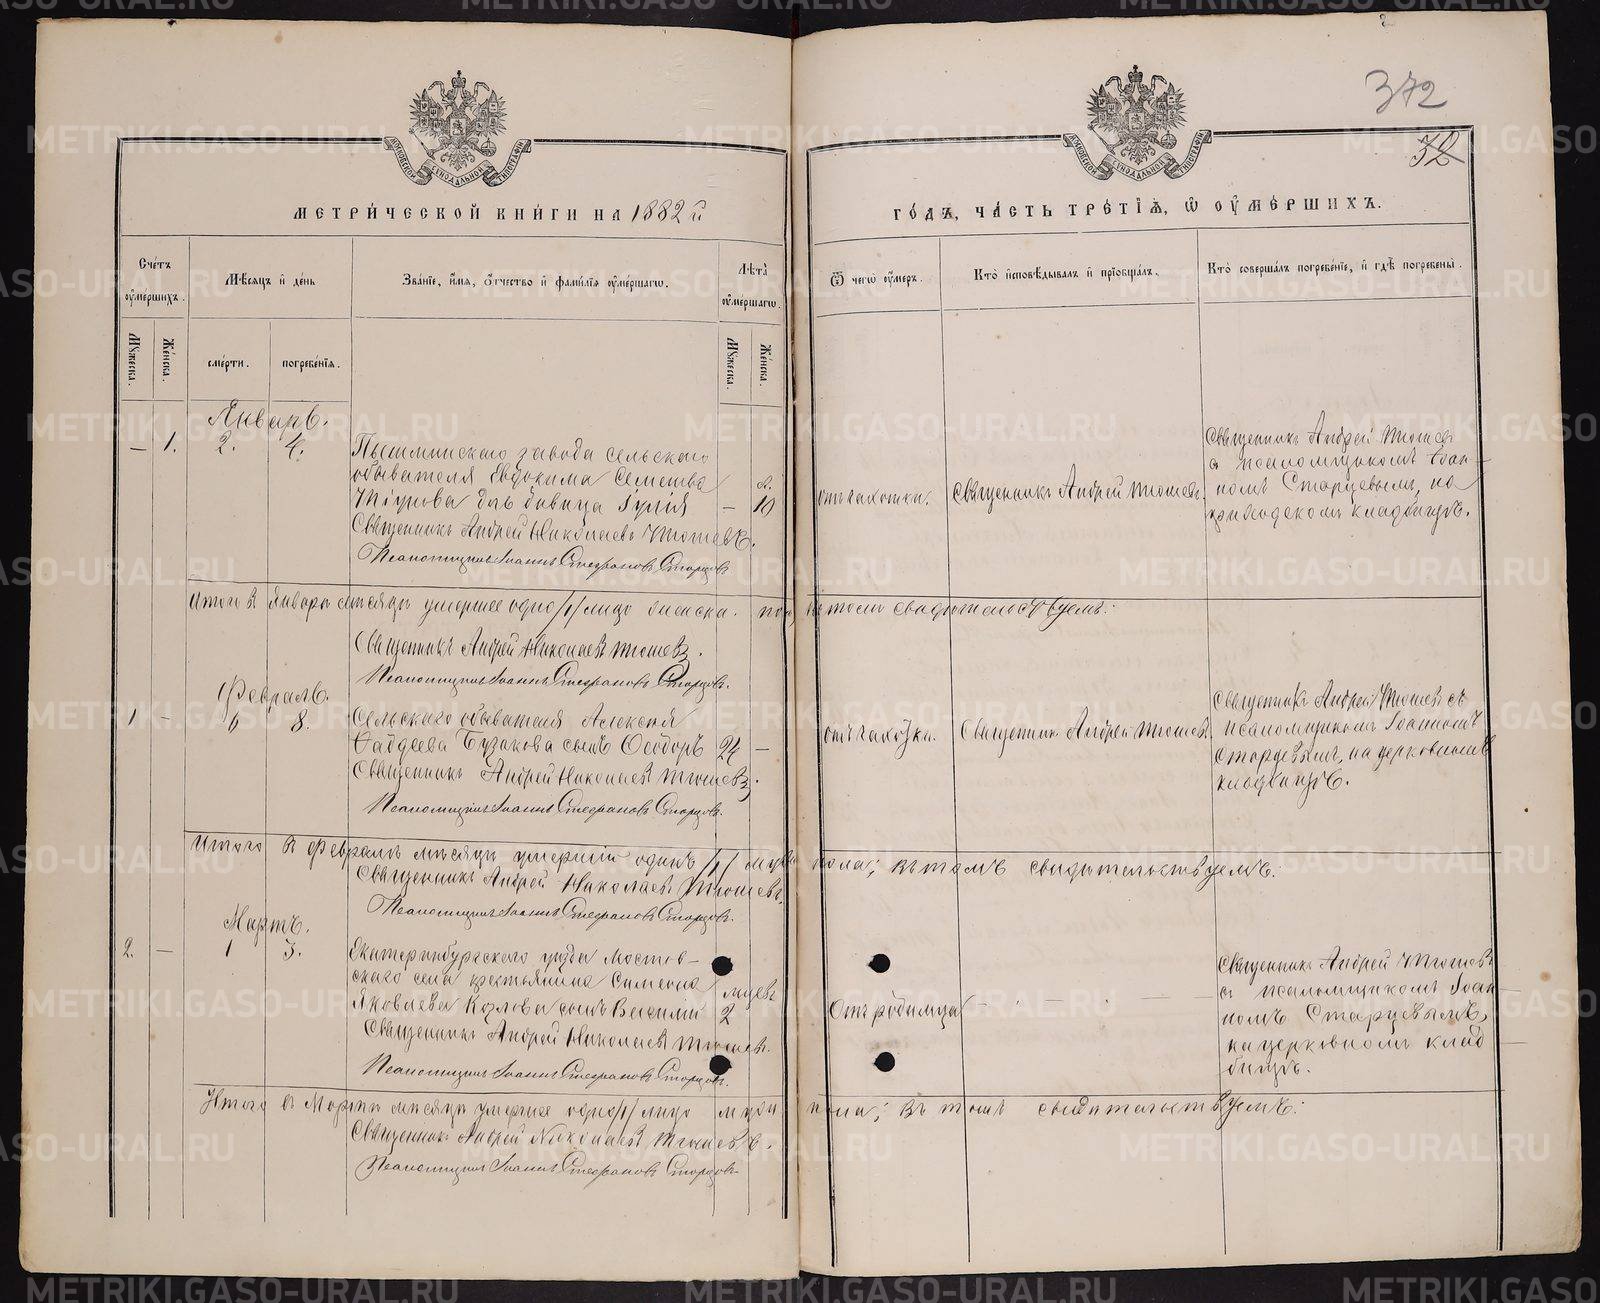 372
32
МОСКОВСКОЙ СѴНОДАЛЬНОЙ ТИПОГРАФІИ
МОСКОВСКОЙ СѴНОДАЛЬНОЙ ТИПОГРАФІИ
МЕТРИ́ЧЕСКОЙ КНИ́ГИ НА 1882 й
ГО́ДЪ, ЧА́СТЬ ТРЕ́ТІѦ, Ѡ ОУ҆МЕ́РШИХЪ.
Сче́тъ оу҆ме́ршихъ.
Мѣ́сяцъ и҆ де́нь
Зва́ніе, и҆́мя, ѻ҆́тчество и҆ фами́лія оу҆ме́ршагѡ.
Лѣ́та оу҆ме́ршагѡ.
Ѿ чегѡ̀ оу҆́меръ.
Кто̀ и҆сповѣ́дывалъ и҆ прїѻбща́лъ.
Кто̀ соверша́лъ погребе́ніе, и҆ гдѣ̀ погребены̀.
Мꙋ́жеска.
Же́нска.
сме́рти.
погребе́нія.
Мꙋ́жеска.
Же́нска.
Январь.
— 1. 2. 4. Пышминскаго завода сельскаго
обывателя Евдокима Семенова
Тіунова дочь девица Іулія — 19
Священникъ Андрей Николаевъ Тюшевъ.
Псаломщикъ Іоаннъ Стефановъ Старцовъ
отъ чахотки. Священникъ Андрей Тюшевъ.
Священникъ Андрей Тюшевъ
съ псаломщикомъ Іоан-
номъ Старцевымъ, на
приходскомъ кладбищѣ.
Итого въ Январѣ мѣсяцѣ умершее одно /1/ лицо женска. пола, въ томъ свидѣтельствуемъ:
Священникъ Андрей Николаевъ Тюшевъ.
Псаломщикъ Іоаннъ Стефановъ Старцовъ.
Февраль.
1 — 6 8. Сельскаго обывателя Алексѣя
Фаддеева Бузакова сынъ Ѳеодоръ 24 —
Священникъ Андрей Николаевъ Тюшевъ.
Псаломщикъ Іоаннъ Стефановъ Старцовъ.
отъ чахотки. Священникъ Андрей Тюшевъ.
Священникъ Андрей Тюшевъ съ
псаломщикомъ Іоанномъ
Старцевымъ, на церковномъ
кладбищѣ.
Итого въ Февралѣ мѣсяцѣ умершій одинъ /1/ мужска пола; въ томъ свидѣтельствуемъ:
Священникъ Андрей Николаевъ Тюшевъ.
Псаломщикъ Іоаннъ Стефановъ Старцовъ.
Мартъ.
2. — 1 3. Екатеринбургскаго уѣзда Мостов-
скаго села крестьянина Симеона
Яковлева Козлова сынъ Василій мцев 2
Священникъ Андрей Николаевъ Тюшевъ.
Псаломщикъ Іоаннъ Стефановъ Старцовъ.
Отъ родимца
Священникъ Андрей Тюшевъ
съ псаломщикомъ Іоан-
номъ Старцевымъ,
на церковномъ клад-
бищѣ.
Итого въ Мартѣ мѣсяцѣ умершее одно /1/ лицо мужск пола; въ томъ свидѣтельствуемъ:
Священникъ Андрей Николаевъ Тюшевъ.
Псаломщикъ Іоаннъ Стефановъ Старцовъ.
METRIKI.GASO-URAL.RU